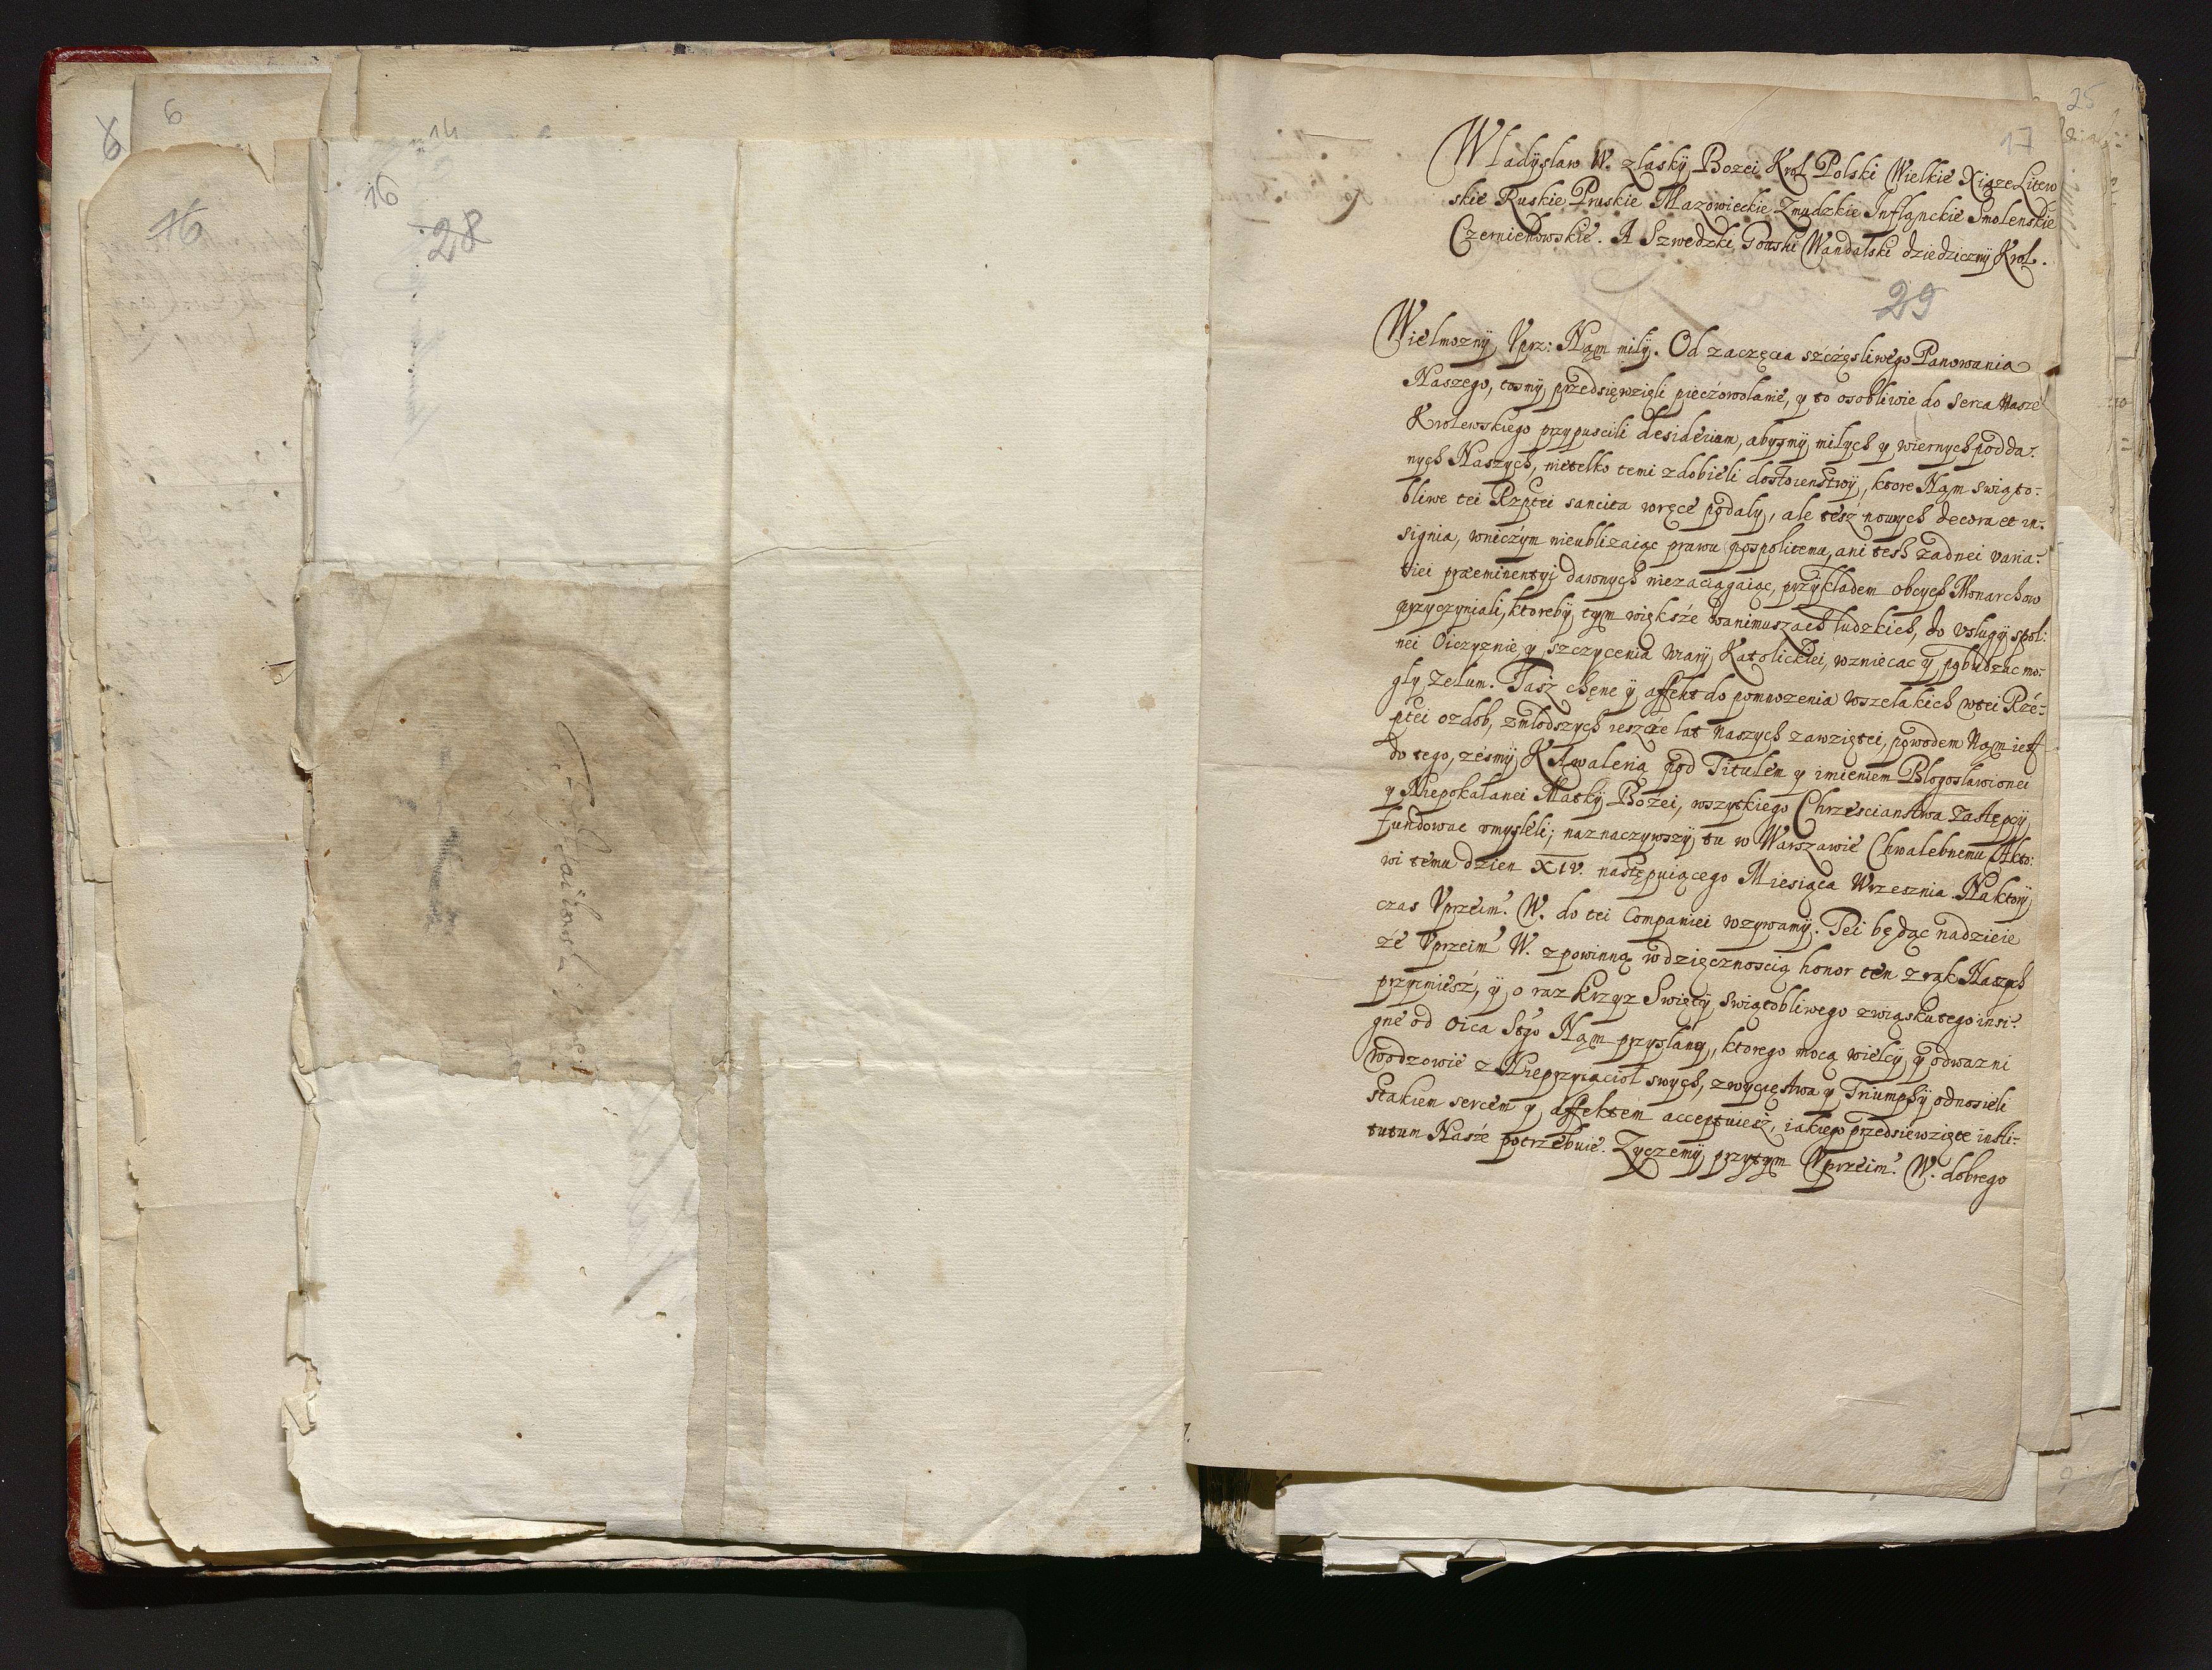 6
6
14
16
16
28
17
25
Wladyslaw IV. z laskÿ Bozei Krol Polski Wielkie Xiąze Litew
skie Ruskie Pruskie Mazowieckie Zmudzkie Inflanckie Smolenskie
Czerniehowskie. A Szwedzki Gottski Wandalski dziedzicznÿ Krol.
29
Wielmoznÿ Vprz: Nąm miłÿ. Od zaczęcia szczęsliwego Panowania
Naszego, tosmÿ przedsięwzięli pieczowolanie, y to osobliwie do Serca Nasze
Krolewskiego przypuscili desiderium, abysmÿ milych y wiernych podda:
nych Naszych, nietelko temi zdobieli dostoienstwÿ, ktore Nąm swiąto:
bliwe tei Rzptei sancita wręce podaly, ale tesz nowych decora et in:
signia, wniczym nieublizaiąc prawu pospolitemu, ani tesz zadnei varia:
tiei præeminentyi dawnych niezaciągaiąc, przÿkladem obcych Monarchow
przyczyniali, ktorebÿ tym większe wanimuszach ludzkich, do vslugÿ spol:
nei Oiczyznie, y szczycenia Wiarÿ Katolickiei, wzniecac y pobudzac mo:
gly zelum. Tasz chęne ÿ affekt do pomnozenia wszelakich wtei Rze:
ptei ozdob, zmlodszych ieszcze lat Naszych zawziętei, powodem Nąm iest
do tego, zesmÿ Kawalerią pod Titulem y imieniem Blogoslawionei
y Niepokalanei Matkÿ Bozei, wszytkiego Chrzescianstwa Zastępcÿ
fundowac vmysleli; naznaczywszÿ tu w Warszawie Chwalebnemu Akto:
wi temu dzien XIV. następuiącego Miesiąca Wrzesznia. Naktorÿ
czas Vprzeim. W. do tei Companiei wzywamÿ. Tei będąc nadzieie
ze Vprzeim W. zpowinną wdzięcznoscią honor ten z rąk Naszych
przyimiesz, ÿ o raz Krzyz Swiętÿ swiątobliwego zwiąsku tego insi:
gne od Oica Stgo Nąm przyslany, ktorego mocą wielcÿ y odwazni
Wodzowie z Nieprzyiaciol swych, zwycięstwa y Triumphÿ odnosieli
stakiem sercem y affektem acceptuiesz, iakiego przedsięwzięte insti:
tutum Nasze potrzebuie. Zyczemÿ przytym Vprzeim. W. dobrego